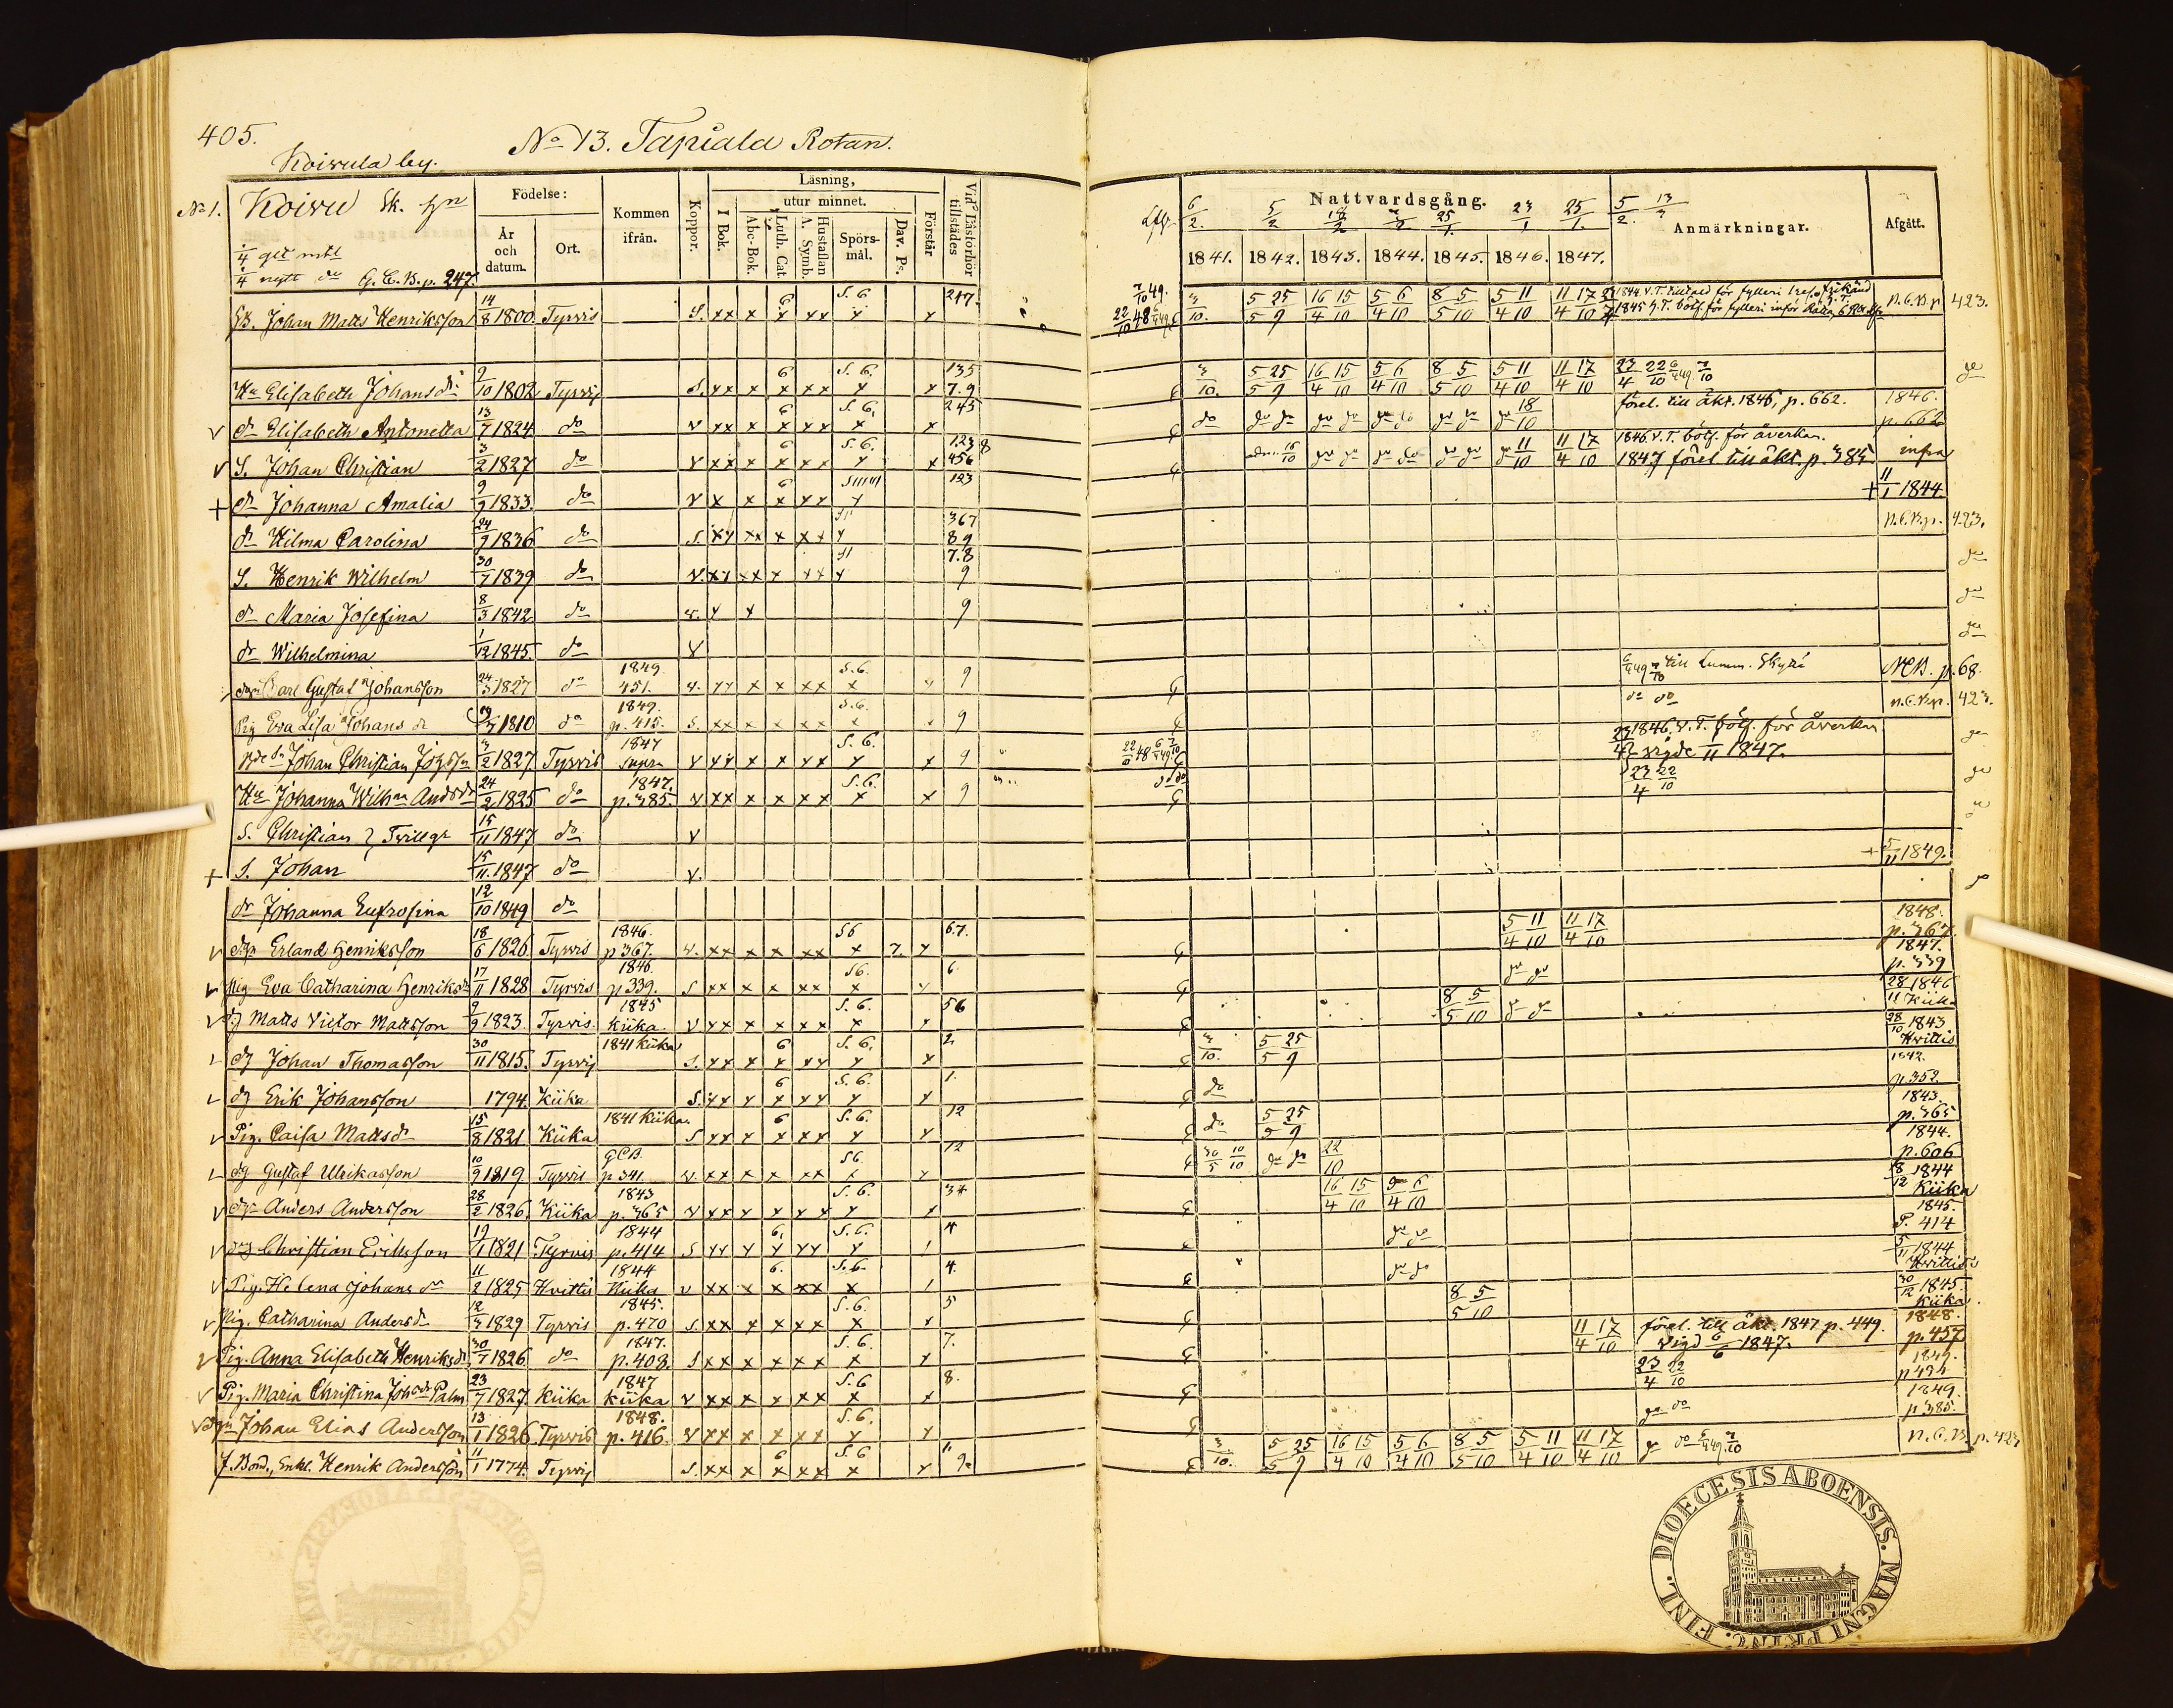 405.
No 13. Tapiala Rotan.
Koivula by.
No 1. Koivu Sk. hn
1/4 glt mtl
1/4 nytt do G. C. B. p. 247.
Födelse:
År och datum.
Ort.
Kommen ifrån.
Koppor.
Läsning,
I Bok.
utur minnet.
Abc-Bok.
Luth. Cat.
Hustaflan
A. Symb.
Spörsmål.
Dav. Ps.
Förstår
Vid Läsförhör tillstädes
Nattvardsgång.
6/2. 5/2 25/1. 23/1 25/1. 5/2. 13/3
1841. 1842. 1843. 1844. 1845. 1846. 1847.
Anmärkningar.
Afgått.
Johan Matts Henriksson 14/8 1800. Tyrvis S. xx x 6 x xx S. 6 x x 247. 3/10. 5/5 25/9 16/4 15/10 5/4 6/10 8/5 5/10 5/4 11/10 11/4 17/10 N.C.B. p 423.
Hu Elisabeth Johansdr 2/10 1802 Tyrvis S. xx x 6 x xx S. 6. x x 135 7.9 3/10. 5/5 25/9 16/4 15/10 5/4 6/10 8/5 5/10 5/4 11/10 11/4 17/10 23/4 22/10 6/4 49 7/10 do
v dr Elisabeth Antonetta 13/7 1824 do v xx x 6 x xx S. 6. x x 245 do do do do do do do do do do 18/10 förel. till äkt. 1846, p. 662. 1846. p. 662
v S. Johan Christian 3/2 1827 do v xx x 6 x xx S. 6. x x 123 8 456 16/10 do do do do do do do 11/10 11/4 17/10 1846 v. T. bötf. för åverkan. 1847 förel till äkt. p. 385 infra
+ dr Johanna Amalia 9/9 1833. do v x x 6 x xx x 123 + 11/1 1844.
dr Hilma Carolina 24/9 1836 do S. xx xx x xx x 367 89 N.C.B.p. 423.
S. Henrik Wilhelm 30/7 1839 do v. xx xx x xx x 7.8 9 do
dr Maria Josefina 8/3 1842 do v. x x 9 do
dr Wilhelmina 1/12 1845. do v do
Carl Gustaf Johansson 24/3 1827 do 1849. 451. v. xx x x xx S. 6. x 9 till Lumm. N.C.B. p. 68.
Pig Eva Lisa Johans dr 1810 do 1849. p. 415. S. xx x x xx S. 6. x 9 do do N.C.B.p. 423.
Johan Christian Johsson 3/2 1827 Tyrvis 1847 supra v xx x x xx S. 6. x x 9 1846 v. T. bötf. för åverkan vigde 1847. do
Hu Johanna Wilhna Andsdr 24/2 1825 do 1847. p. 385. v xx x x xx S. 6. x x 9 23/4 22/10 do
S. Christian } Tvillgr 15/11 1847 do v
+ S. Johan 15/11. 1847 do v. + 5/11 1849.
dr Johanna Eufrosina 12/10 1849 do
v Erland Henriksson 18/6 1826. Tyrvis 1846. p 367. v. xx x x xx S6 x 7. x 6.7. 5/4 11/10 11/4 17/10 1848. p. 367
v Pig Eva Catharina Henriksdr 17/11 1828 Tyrvis 1846. p 339. S xx x x xx S6. x x 6. do do 1847. p. 339
v Matts Victor Mattsson 2/9 1823. Tyrvis. 1845 Kiika. v xx x x xx S. 6. x x 56 8/5 5/10 do do 28/11 1846 Kiika
Johan Thomasson 30/11 1815. Tyrvis 1841 Kiika S. xx x 6 x xx S. 6. x x 2. 3/10. 5/5 25/9 28/10 1843 Hvittis
Erik Johansson 1794. Kiika S. xx x 6 x xx S. 6. x x 1. do 1842. p. 352
v Pig. Caisa Mattsdr 15/8 1821 Kiika 1841 Kiika S xx x 6 x xx S. 6. x x 12 do 5/5 25/9 1843. p. 365
Gustaf Ulrikasson 10/9 1819. Tyrvis GCB. p 341 v. xx x x xx S6. x x 12 30/5 10/10 do do 22/10 1844. p. 606
v Anders Andersson 28/2 1826. Kiika 1843 p. 365 v xx x x xx S. 6. x x 34 16/4 15/10 5/4 6/10 18/12 1844 Kiika
v Christian Eriksson 19/1 1821 Tyrvis 1844 p. 414 S xx x 6. x xx S. 6. x 4 do do 1845. P. 414
v Pig. Helena Johans dr 11/2 1825 Hvittis 1844 Kiika v xx x 6. x xx S. 6. x 4. do do 5/11 1844 Hvittis
v Pig. Catharina Andersdr 12/3 1829 Tyrvis 1845. p. 470 S. xx x x xx S. 6. x x 5 8/5 5/10 30/12 1845. Kiika.
v Pig. Anna Elisabeth Henriksdr 30/7 1826 do 1847. p. 408. S xx x x xx S. 6. x x 7. 11/4 17/10 förel. till äkt. 1847 p. 449. vigd 6/6 1847. 1848. p. 457
v Pig. Maria Christina Johsdr Palm 23/7 1827. Kiika 1847 Kiika v xx x x xx S. 6 x x 8. 23/4 22/10 1849. p 434
v Johan Elias Andersson 13/1 1826 Tyrvis 1848. p. 416. v xx x x xx S. 6. x x do do 1849. p 385.
F. Bond., Enkl. Henrik Andersson 11/1 1774. Tyrvis S. xx x 6 x xx S. 6 x x 3/10. 5/5 25/9 16/4 15/10 5/4 6/10 8/5 5/10 5/4 11/10 11/4 17/10 do do N.C.B. p. 423
DIOECESIS ABOENSIS. MAGNI PRINC. FINL.